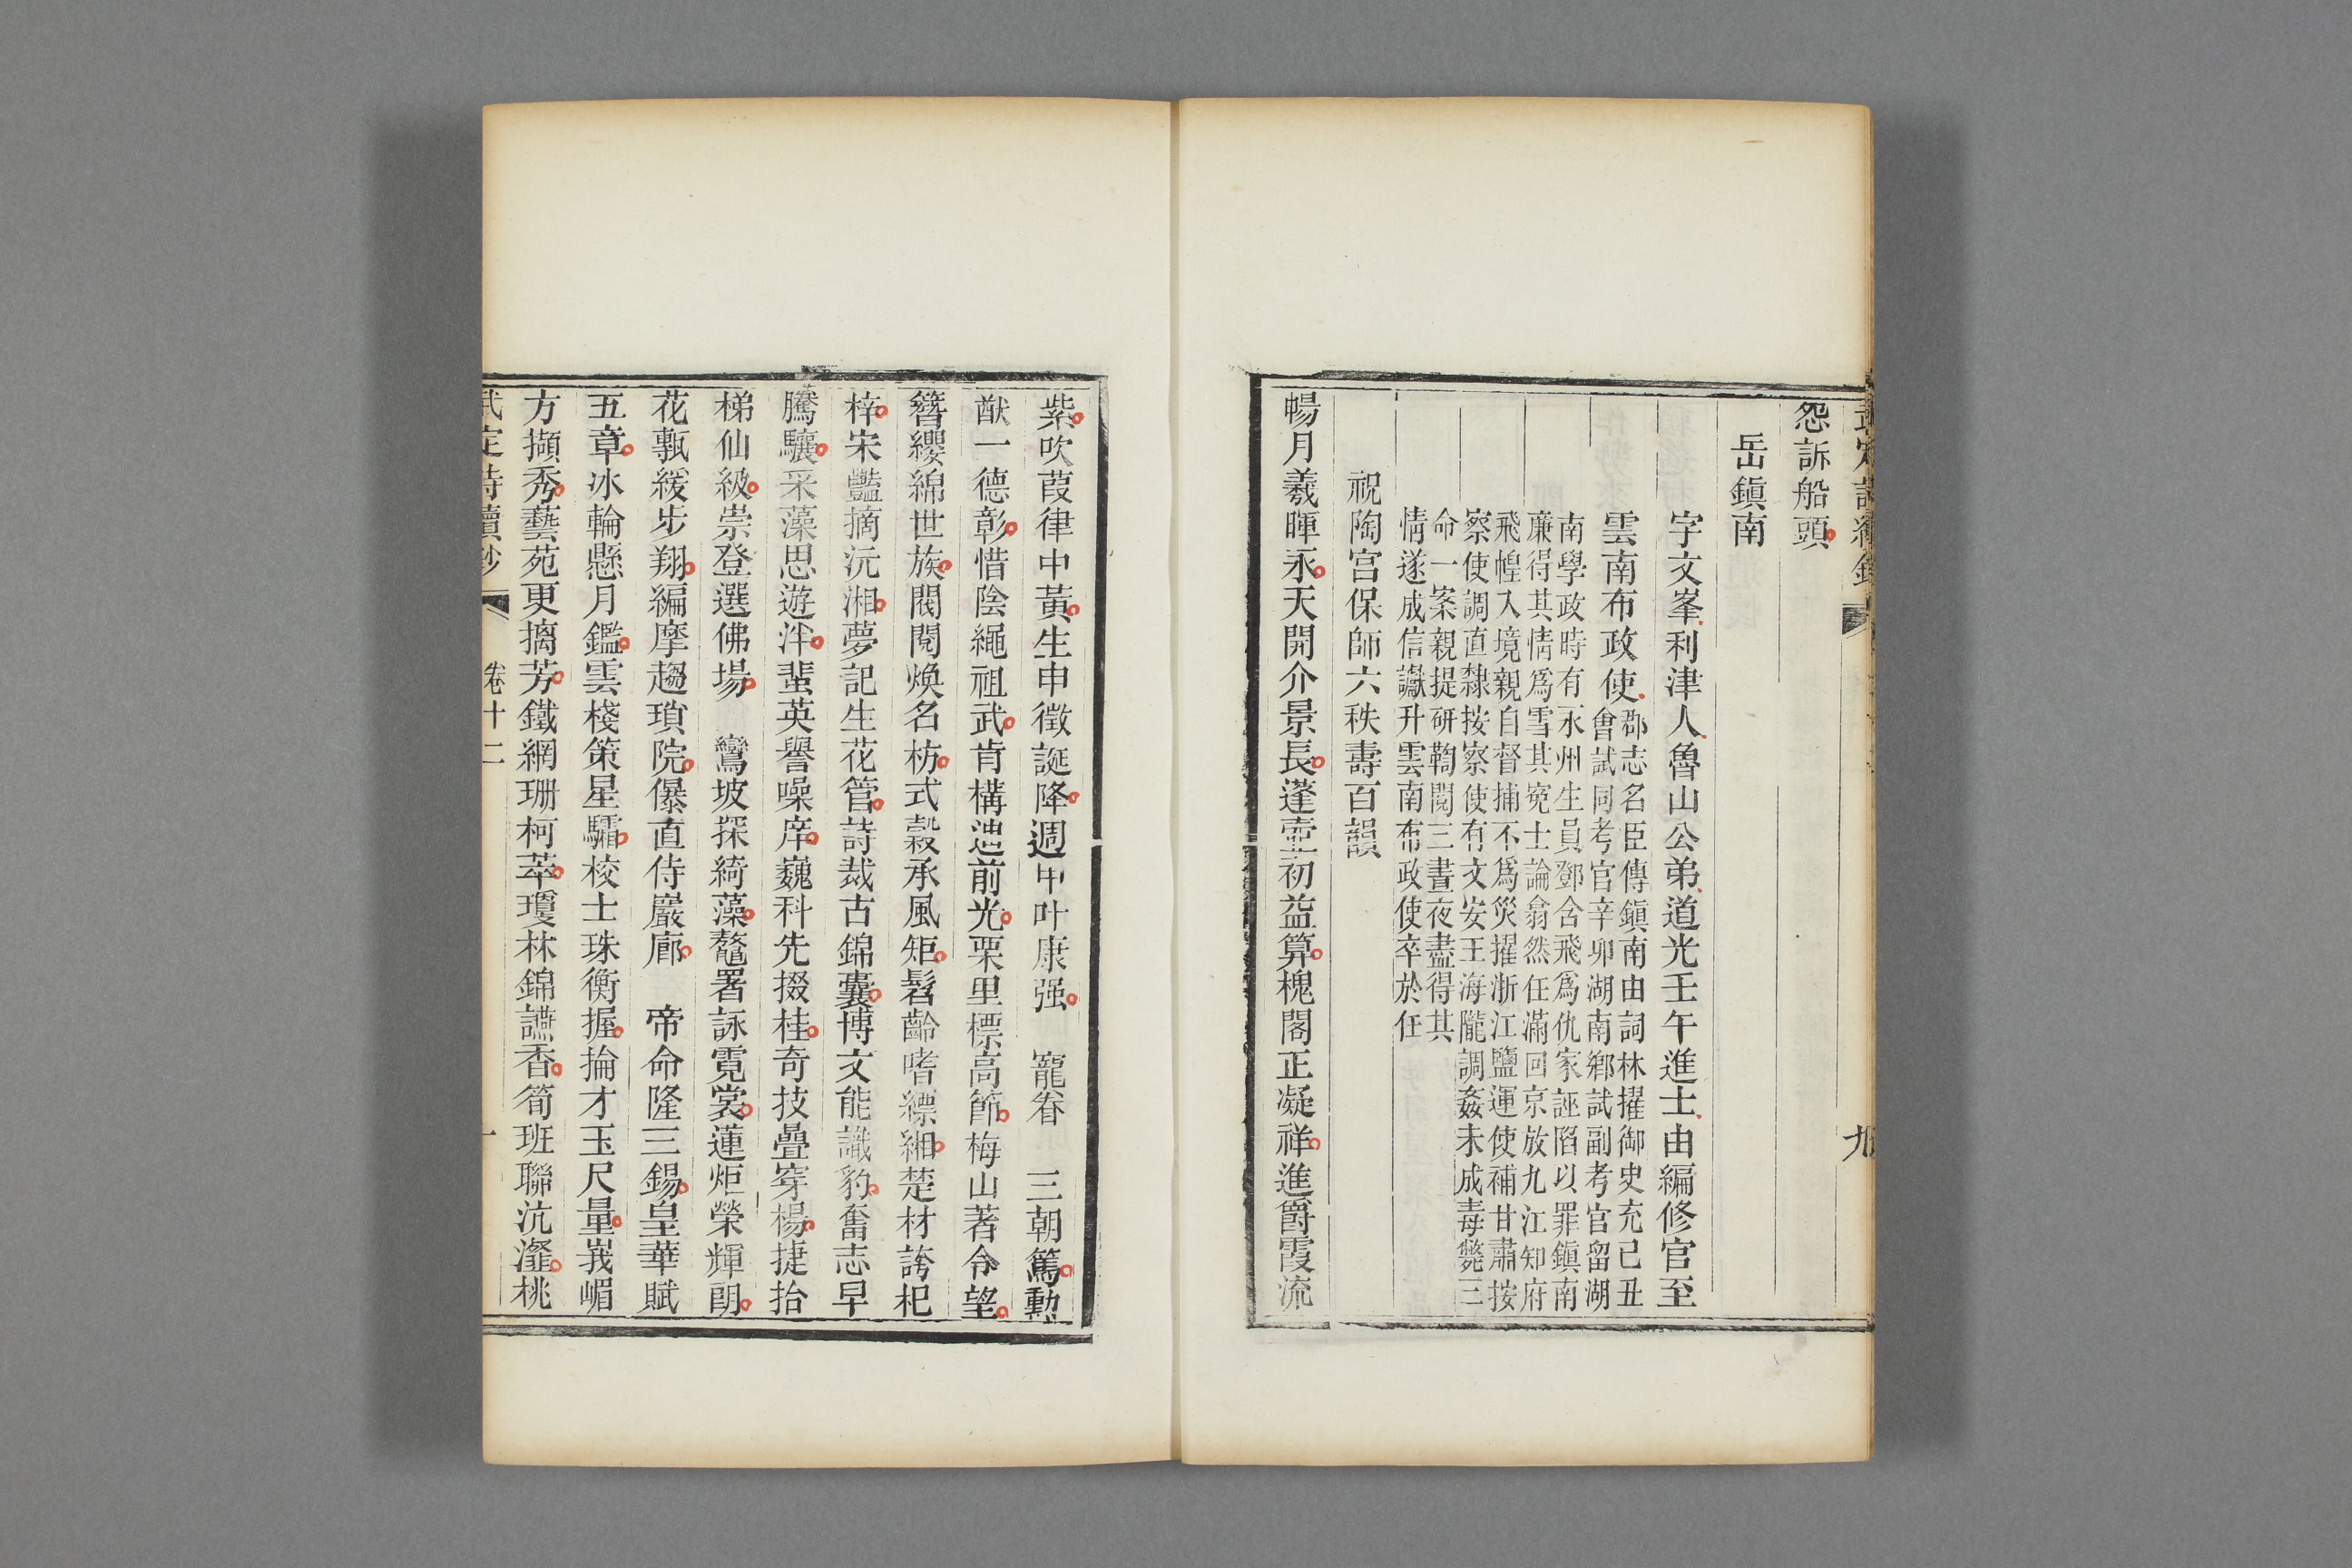 怨訴船頭
岳鎮南
字文峯利津人魯山公弟道光壬午進士由編修官至
雲南布政使
郡志名臣傳鎮南由詞林擢御史充己丑
會試同考官辛卯湖南鄉試副考官留湖
南學政時有永州生員鄧含飛爲仇家誣陷以罪鎮南
廉得其情爲雪其冤士論翕然任滿回京放九江知府
飛蝗入境親自督捕不爲災擢浙江鹽運使補甘肅按
察使調直隸按察使有文安王海隴調姦未成毒斃三
命一案親提研鞫閱三晝夜盡得其
情遂成信讞升雲南布政使卒於任
祝陶宮保師六秩壽百韻
暢月羲暉永天開介景長蓬壺初益算槐閣正凝祥進爵霞流
紫吹葭律中黃生申徵誕降週甲叶康强 寵眷 三朝篤勳
猷一德彰惜陰繩祖武肯構迆前光栗里標高節梅山著令望
簪纓綿世族閥閱煥名枋式穀承風矩髫齡嗜縹緗楚材誇杞
梓宋豔摘沅湘夢記生花管詩裁古錦囊博文能識豹奮志早
騰驤采藻思遊泮蜚英譽噪庠巍科先掇桂奇技疊穿楊捷拾
梯仙級崇登選佛場 鸞坡探綺藻鼇署詠霓裳蓮炬榮輝朗
花甎緩步翔編摩趨瑣院儤直侍巖廊 帝命隆三錫皇華賦
五章冰輪懸月鑑雲棧策星驦校士珠衡握掄才玉尺量峩嵋
方擷秀藝苑更摛芳鐵網珊柯萃瓊林錦讌香筍班聯沆瀣桃
卷十二